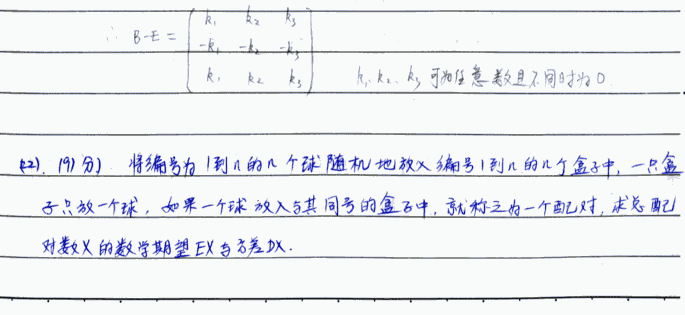 ∴ B-E = ( k₁ k₂ k₃
-k₁ -k₂ -k₃
k₁ k₂ k₃ ) k₁、k₂、k₃ 可为任意数且不同时为0
(22). (9分) 将编号为1到n的n个球随机地放入编号1到n的n个盒子中,一只盒
子只放一个球,如果一个球放入与其同号的盒子中,就称之为一个配对,求总配
对数X的数学期望EX与方差DX.